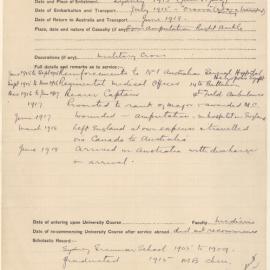 Date of Embarkation and Transport July 1915
Date of Return to Australia and Transport June 1918
Place, date and nature of Casualty (if any) Amputation Right Ankle
Decorations (if any) Military Cross
Full details and remarks as to service
Reinforcements to No 1 Australian General Hospital
Regimental Medical Officer 14th Battalion
Bearer Captain 4th Field Ambulance
1917 Promoted to rank of major - awarded M.C.
June 1917 wounded - amputation - in hospital in England
March 1918 left England at own expense & travelled
via Canada to Australia
June 1918 Arrived in Australia with discharge
on arrival.
Date of entering upon University Course Faculty Medicine
Date of recommencing University Course after service abroad did not recommence
Scholastic Record
Sydney Grammar School 1905 to 1909.
Graduated 1915 MB ChM.